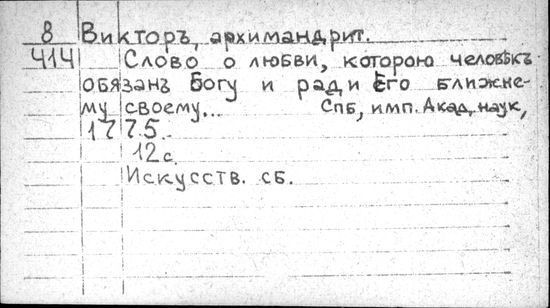 8 Викторъ, архимандрит.
414 Слово о любви, которою человѣкъ
обязанъ Богу и ради Его ближне-
му своему... Спб, имп. Акад. наук,
1775.
12 с.
Искусств. сб.